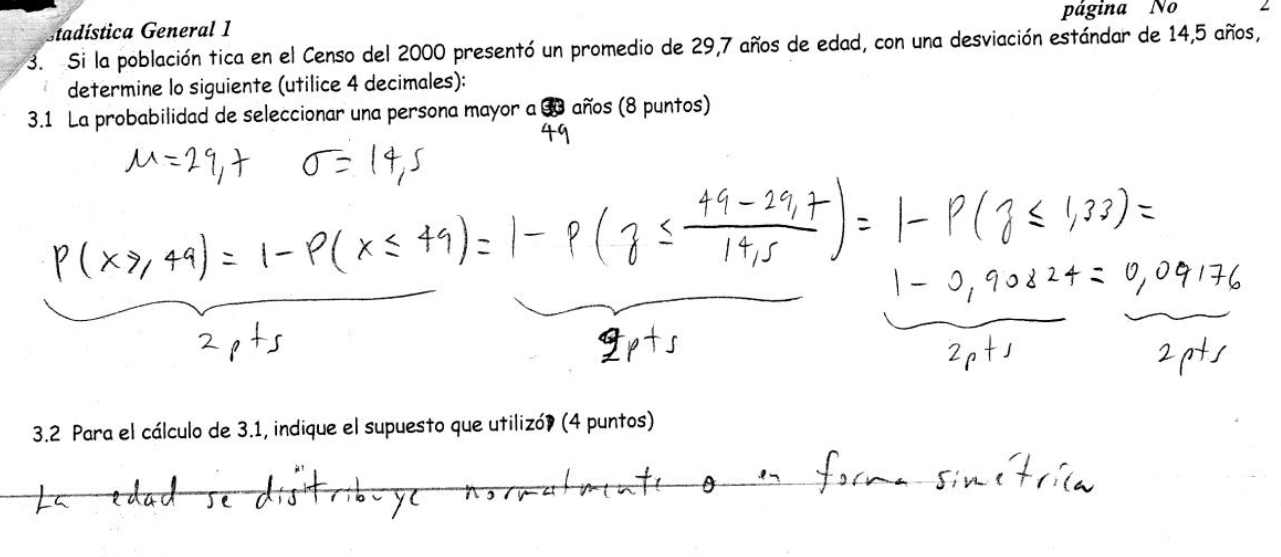 página No 2
stadística General 1
3. Si la población tica en el Censo del 2000 presentó un promedio de 29,7 años de edad, con una desviación estándar de 14,5 años,
determine lo siguiente (utilice 4 decimales):
3.1 La probabilidad de seleccionar una persona mayor a años (8 puntos)
49
μ=29,7 σ=14,5
P(x≥49) = 1-P(x≤49) = 1-P(z ≤ (49-29,7)/14,5) = 1-P(z≤1,33)=
1-0,90824 = 0,09176
2pts 2pts 2pts 2pts
3.2 Para el cálculo de 3.1, indique el supuesto que utilizó? (4 puntos)
La edad se distribuye normalmente o en forma simétrica